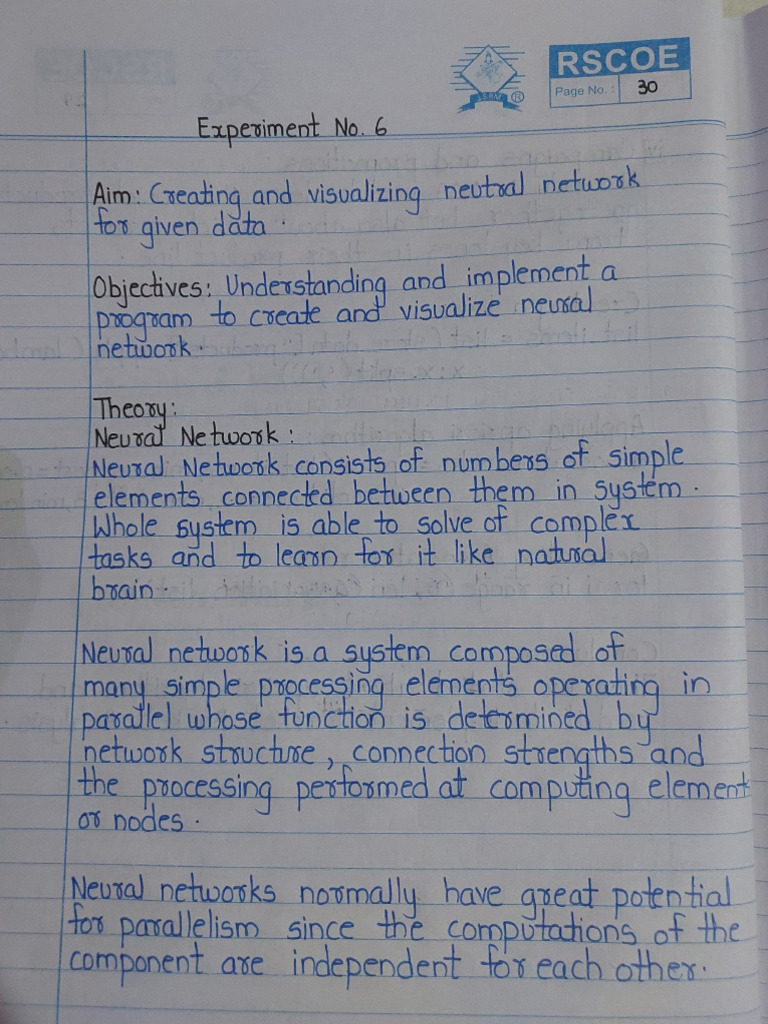 RSCOE
Page No. : 30
JSPM ®
Experiment No. 6
Aim: Creating and visualizing neutral network
for given data.
Objectives: Understanding and implement a
program to create and visualize neural
network.
Theory:
Neural Network:
Neural Network consists of numbers of simple
elements connected between them in system.
Whole system is able to solve of complex
tasks and to learn for it like natural
brain.
Neural network is a system composed of
many simple processing elements operating in
parallel whose function is determined by
network structure, connection strengths and
the processing performed at computing element
or nodes.
Neural networks normally have great potential
for parallelism since the computations of the
component are independent for each other.